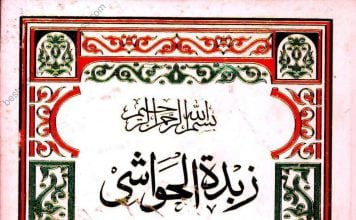 بسم الله الرحمن الرحيم
زبدة الحواشى